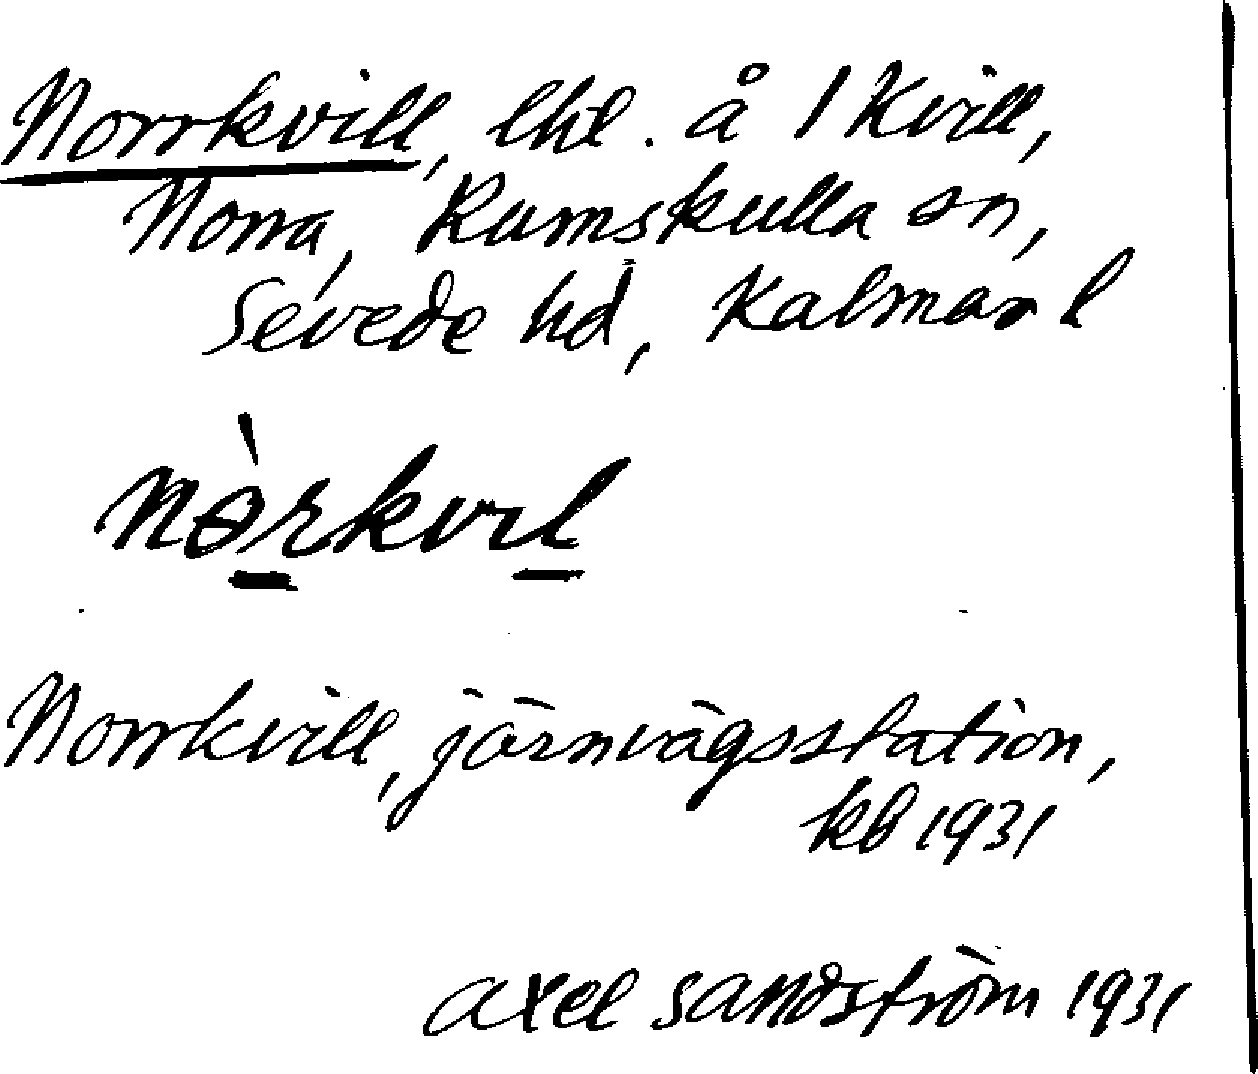 Norrkvill, lht. å 1 Kvill,
Norra, Rumskulla sn,
Sevede hd, Kalmar l
nòrkvıl
Norrkvill, järnvägsstation,
kb 1931
Axel Sandström 1931